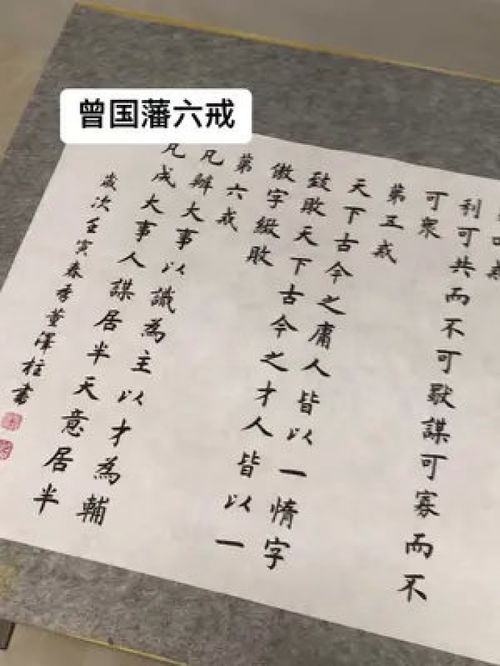 曾国藩六戒
利可共而不可獨謀可寡而不
可衆
第五戒
天下古今之庸人皆以一惰字
致敗天下古今之才人皆以一
傲字緻敗
第六戒
凡辦大事以識為主以才為輔
凡成大事人謀居半天意居半
歲次壬寅春季董澤柱書